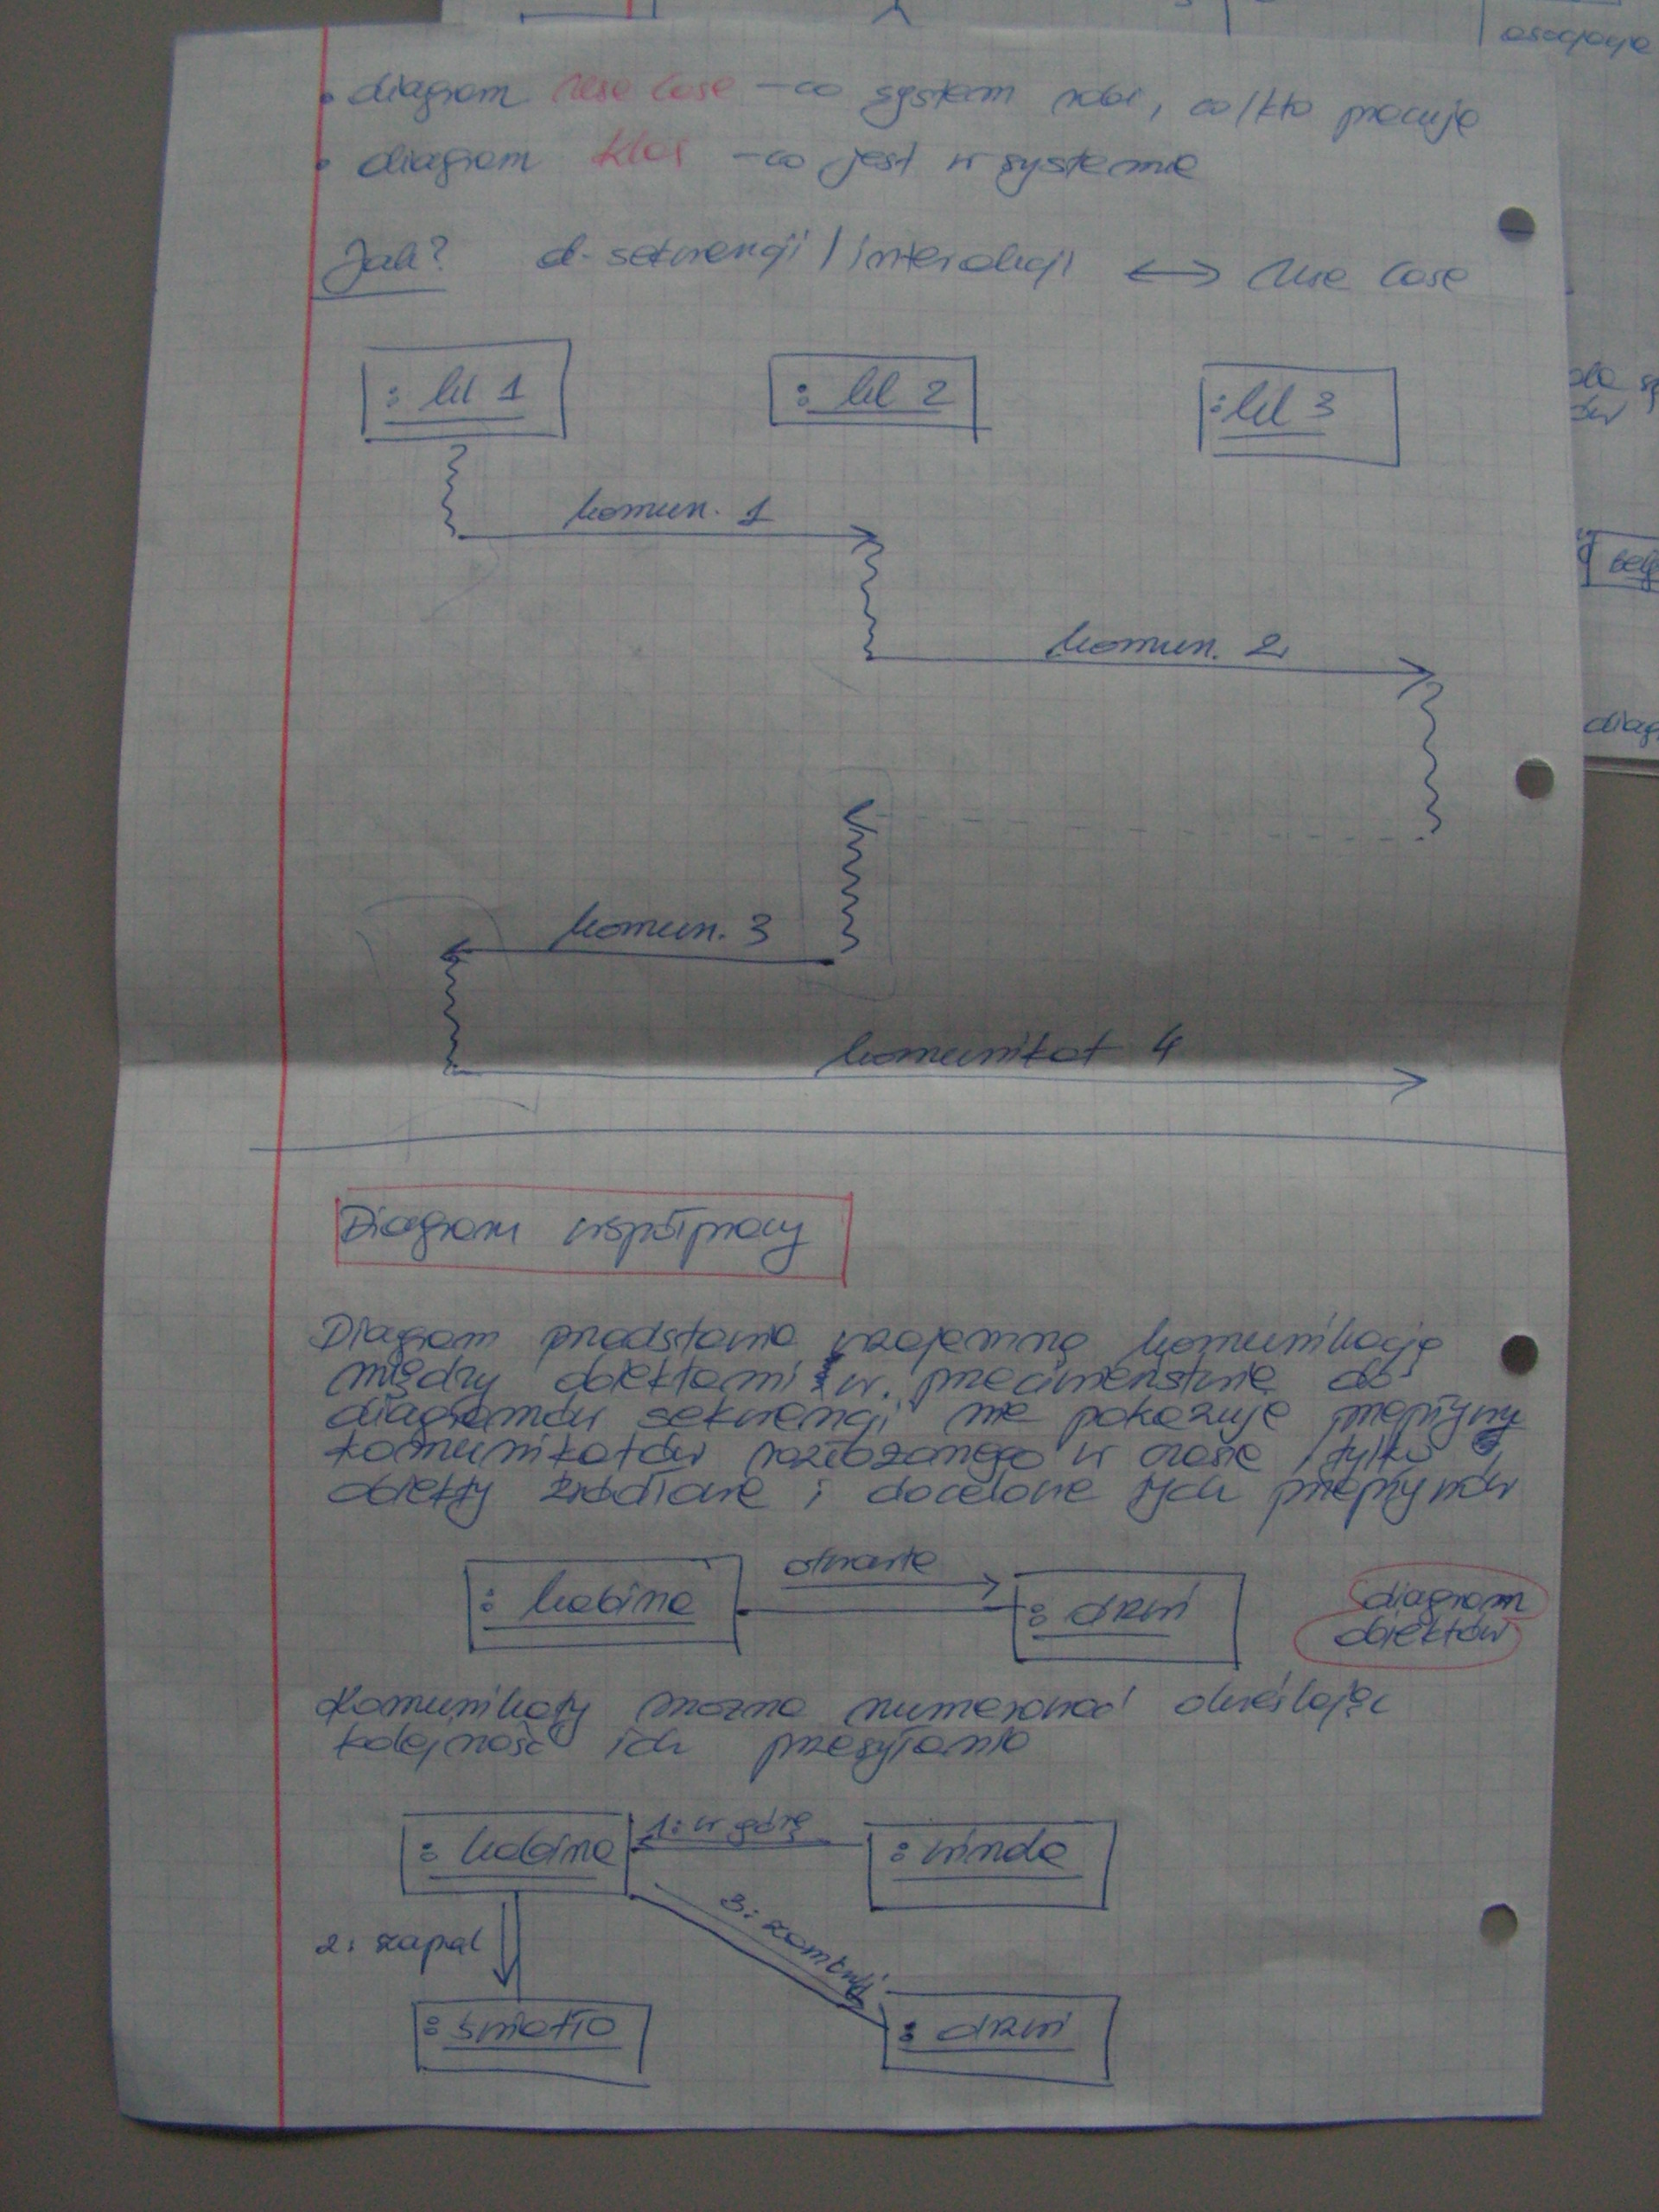 • diagram use case – co system robi, co/kto pracuje
• diagram klas – co jest w systemie
Jak? d. sekwencji / interakcji ↔ use case
: kl 1
: kl 2
: kl 3
komun. 1
komun. 2
komun. 3
komunikat 4
Diagram współpracy
Diagram przedstawia wzajemną komunikację
między obiektami w. przeciwieństwie do
diagramów sekwencji nie pokazuje przepływy
komunikatów rozciągnego w czasie, tylko
obiekty źródłowe i docelowe tych przepływów
: kabina
otwarte
: drzwi
diagram
obiektów
Komunikaty można numerować określając
kolejność ich przesyłania
: kabina
1: w górę
: winda
2: zapal
3: zamknij
: światło
: drzwi
diag